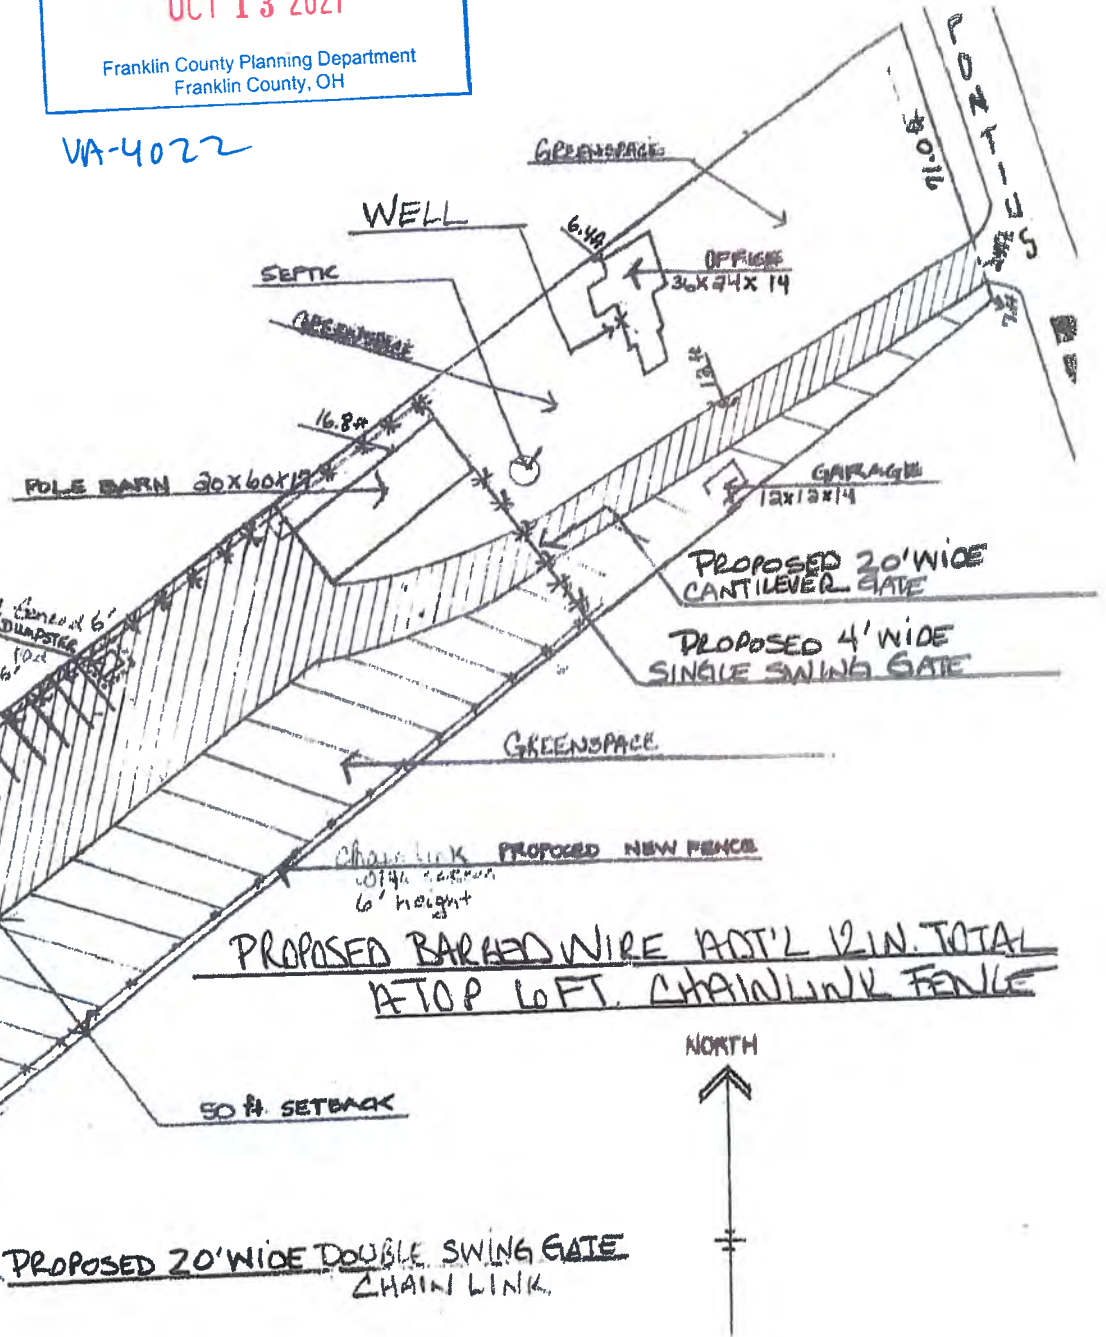 OCT 13 2021
Franklin County Planning Department
Franklin County, OH
VA-4022
PONTIUS
GREENSPACE
91.0 ft
WELL
6.4ft
OFFICE
36x24x14
SEPTIC
GREENSPACE
12 ft
7ft
16.8ft
POLE BARN 20x60x12
GARAGE
12x12x14
PROPOSED 20' WIDE
CANTILEVER GATE
6'
DUMPSTER
6'
PROPOSED 4' WIDE
SINGLE SWING GATE
GREENSPACE
Chain link PROPOSED NEW FENCE
6' height
PROPOSED BARBED WIRE ADT'L 12 IN. TOTAL
ATOP 6 FT. CHAINLINK FENCE
NORTH
50 ft. SETBACK
PROPOSED 20' WIDE DOUBLE SWING GATE
CHAIN LINK